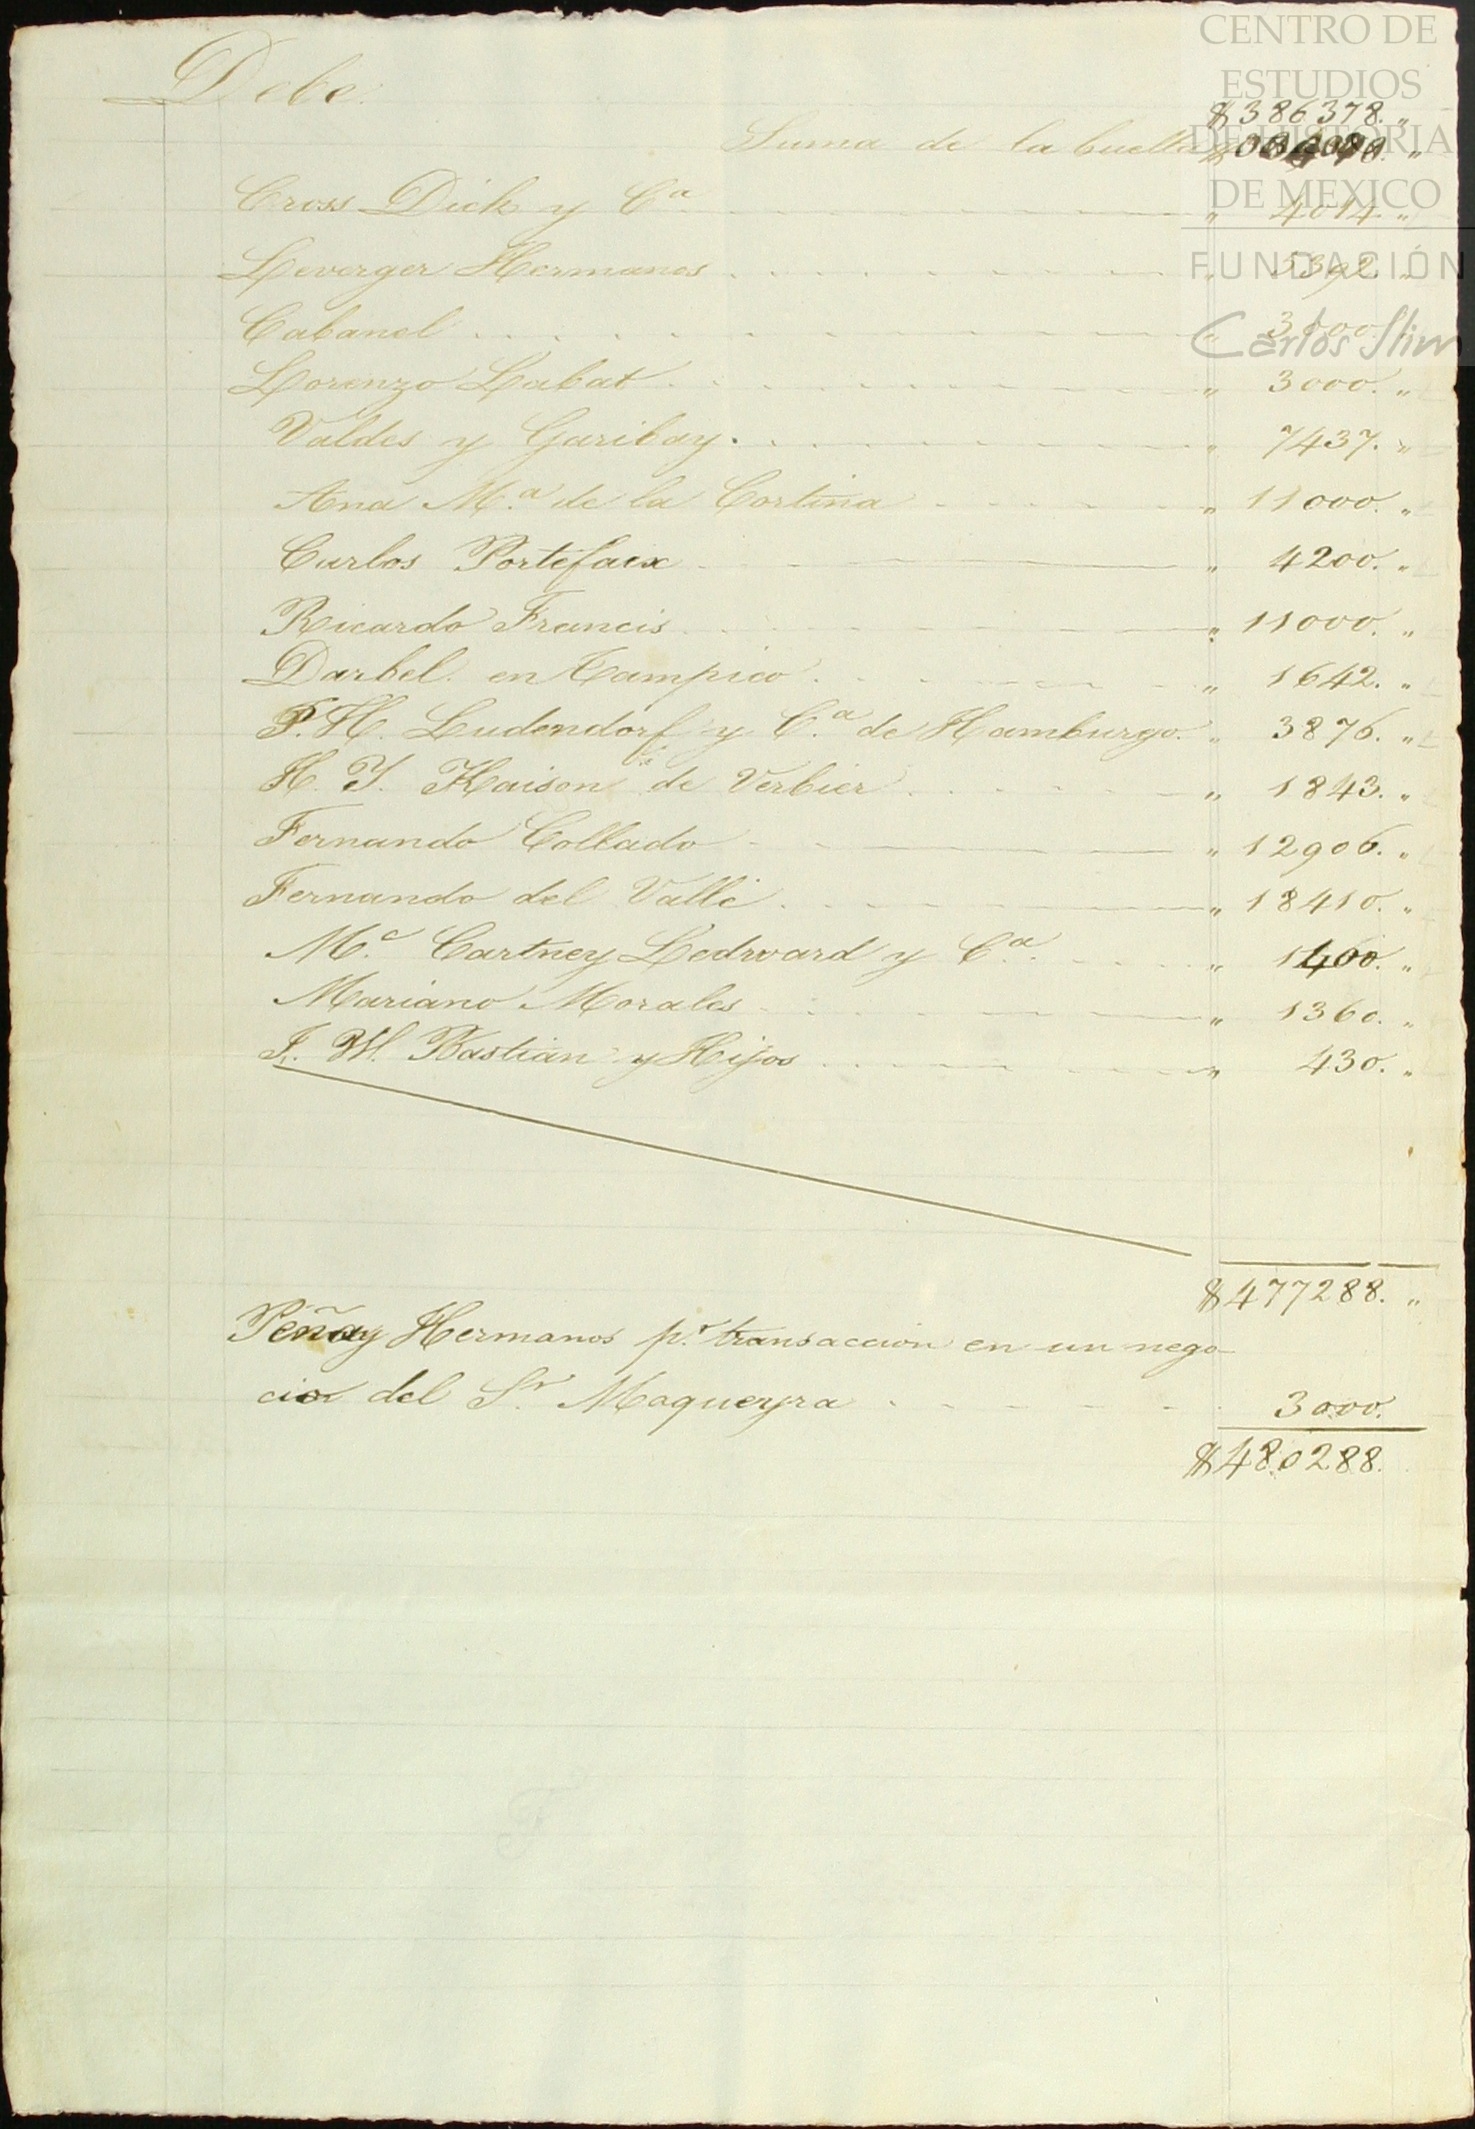 CENTRO DE
ESTUDIOS
DE HISTORIA
DE MEXICO
FUNDACIÓN
Carlos Slim
Debe.
$386378. "
Suma de la buelta
Cross Dick y Cª " 4014 "
Leverger Hermanos " 5392. "
Cabanel " 3000. "
Lorenzo Labat " 3000. "
Valdes y Garibay. " 7437. "
Ana M.ª de la Cortina " 11000. "
Carlos Portefaix " 4200. "
Ricardo Francis " 11000. "
Darbel. en Tampico " 1642. "
P. H. Ludendorf y C.ª de Hamburgo. " 3876. "
H. Y. Kaison de Verbier " 1843. "
Fernando Collado " 12906. "
Fernando del Valle " 18410. "
M.c Cartney Ledward y C.ª " 1400. "
Mariano Morales " 1360. "
J. W. Bastian y Hijos " 430. "
$477288. "
Peña y Hermanos p.r transaccion en un nego
cio del S.r Maqueyra 3000.
$480288.